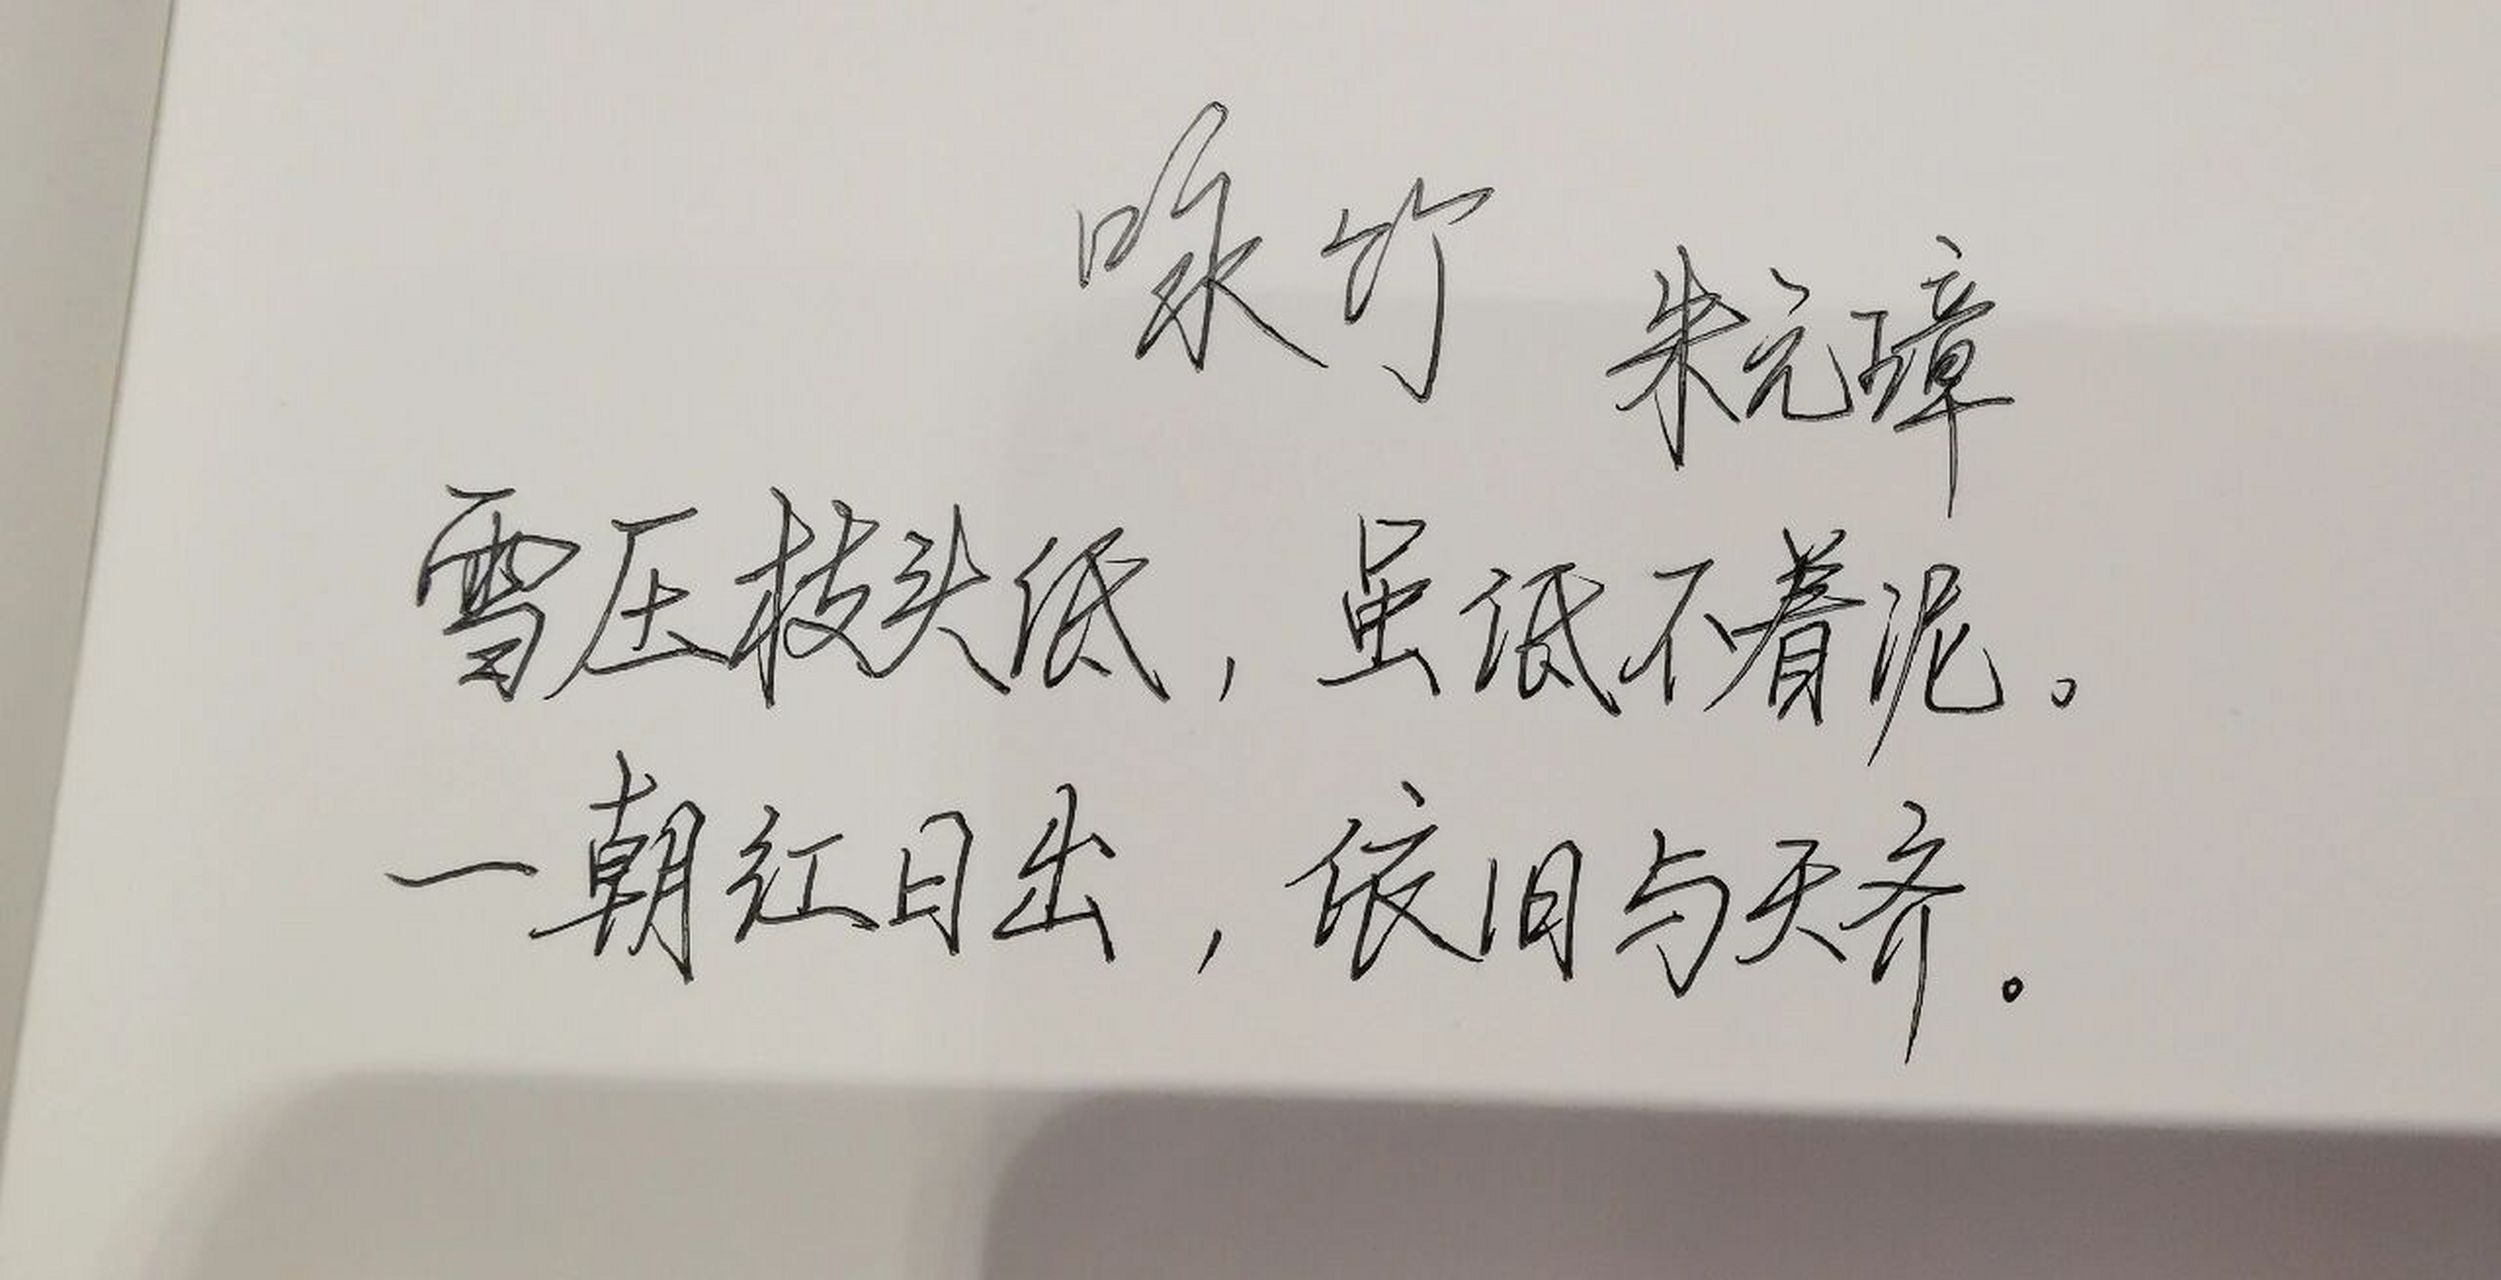 咏竹
朱元璋
雪压枝头低，虽低不着泥。
一朝红日出，依旧与天齐。